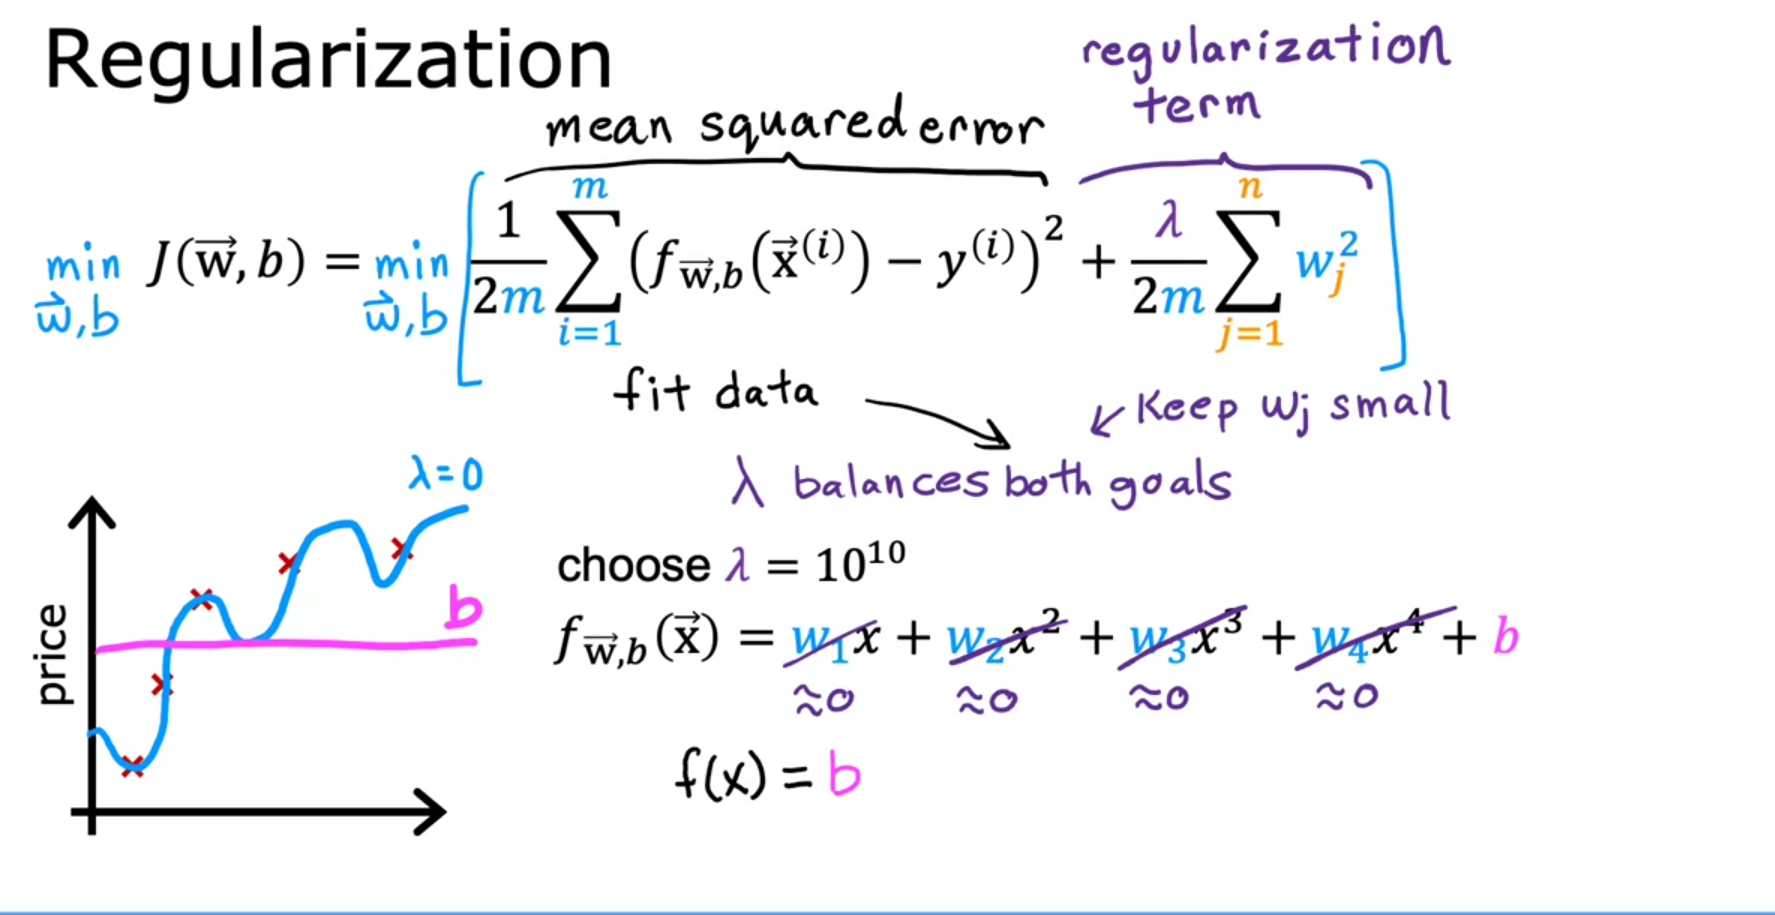 Regularization
mean squared error
regularization
term
min w⃗,b J(w⃗,b) = min w⃗,b [ 1/2m ∑ i=1 m (f w⃗,b(x⃗⁽ⁱ⁾) − y⁽ⁱ⁾)² + λ/2m ∑ j=1 n wⱼ² ]
fit data
Keep wj small
λ balances both goals
λ=0
choose λ = 10¹⁰
b
price
f w⃗,b(x⃗) = w₁x + w₂x² + w₃x³ + w₄x⁴ + b
≈0 ≈0 ≈0 ≈0
f(x) = b